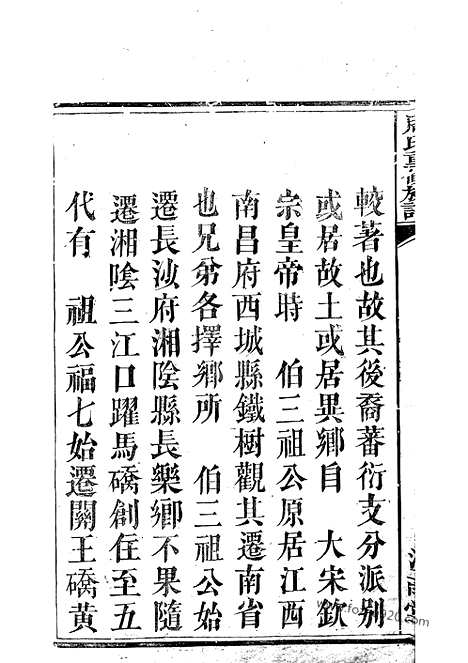 較著也故其後裔蕃衍支分派別
或居故土或居異鄉自 大宋欽
宗皇帝時 伯三祖公原居江西
南昌府西城縣鐵樹觀其遷南省
也兄弟各擇鄉所 伯三祖公始
遷長沙府湘陰縣長樂鄉不果隨
遷湘陰三江口躍馬礄創住至五
代有 祖公福七始遷關王礄黃